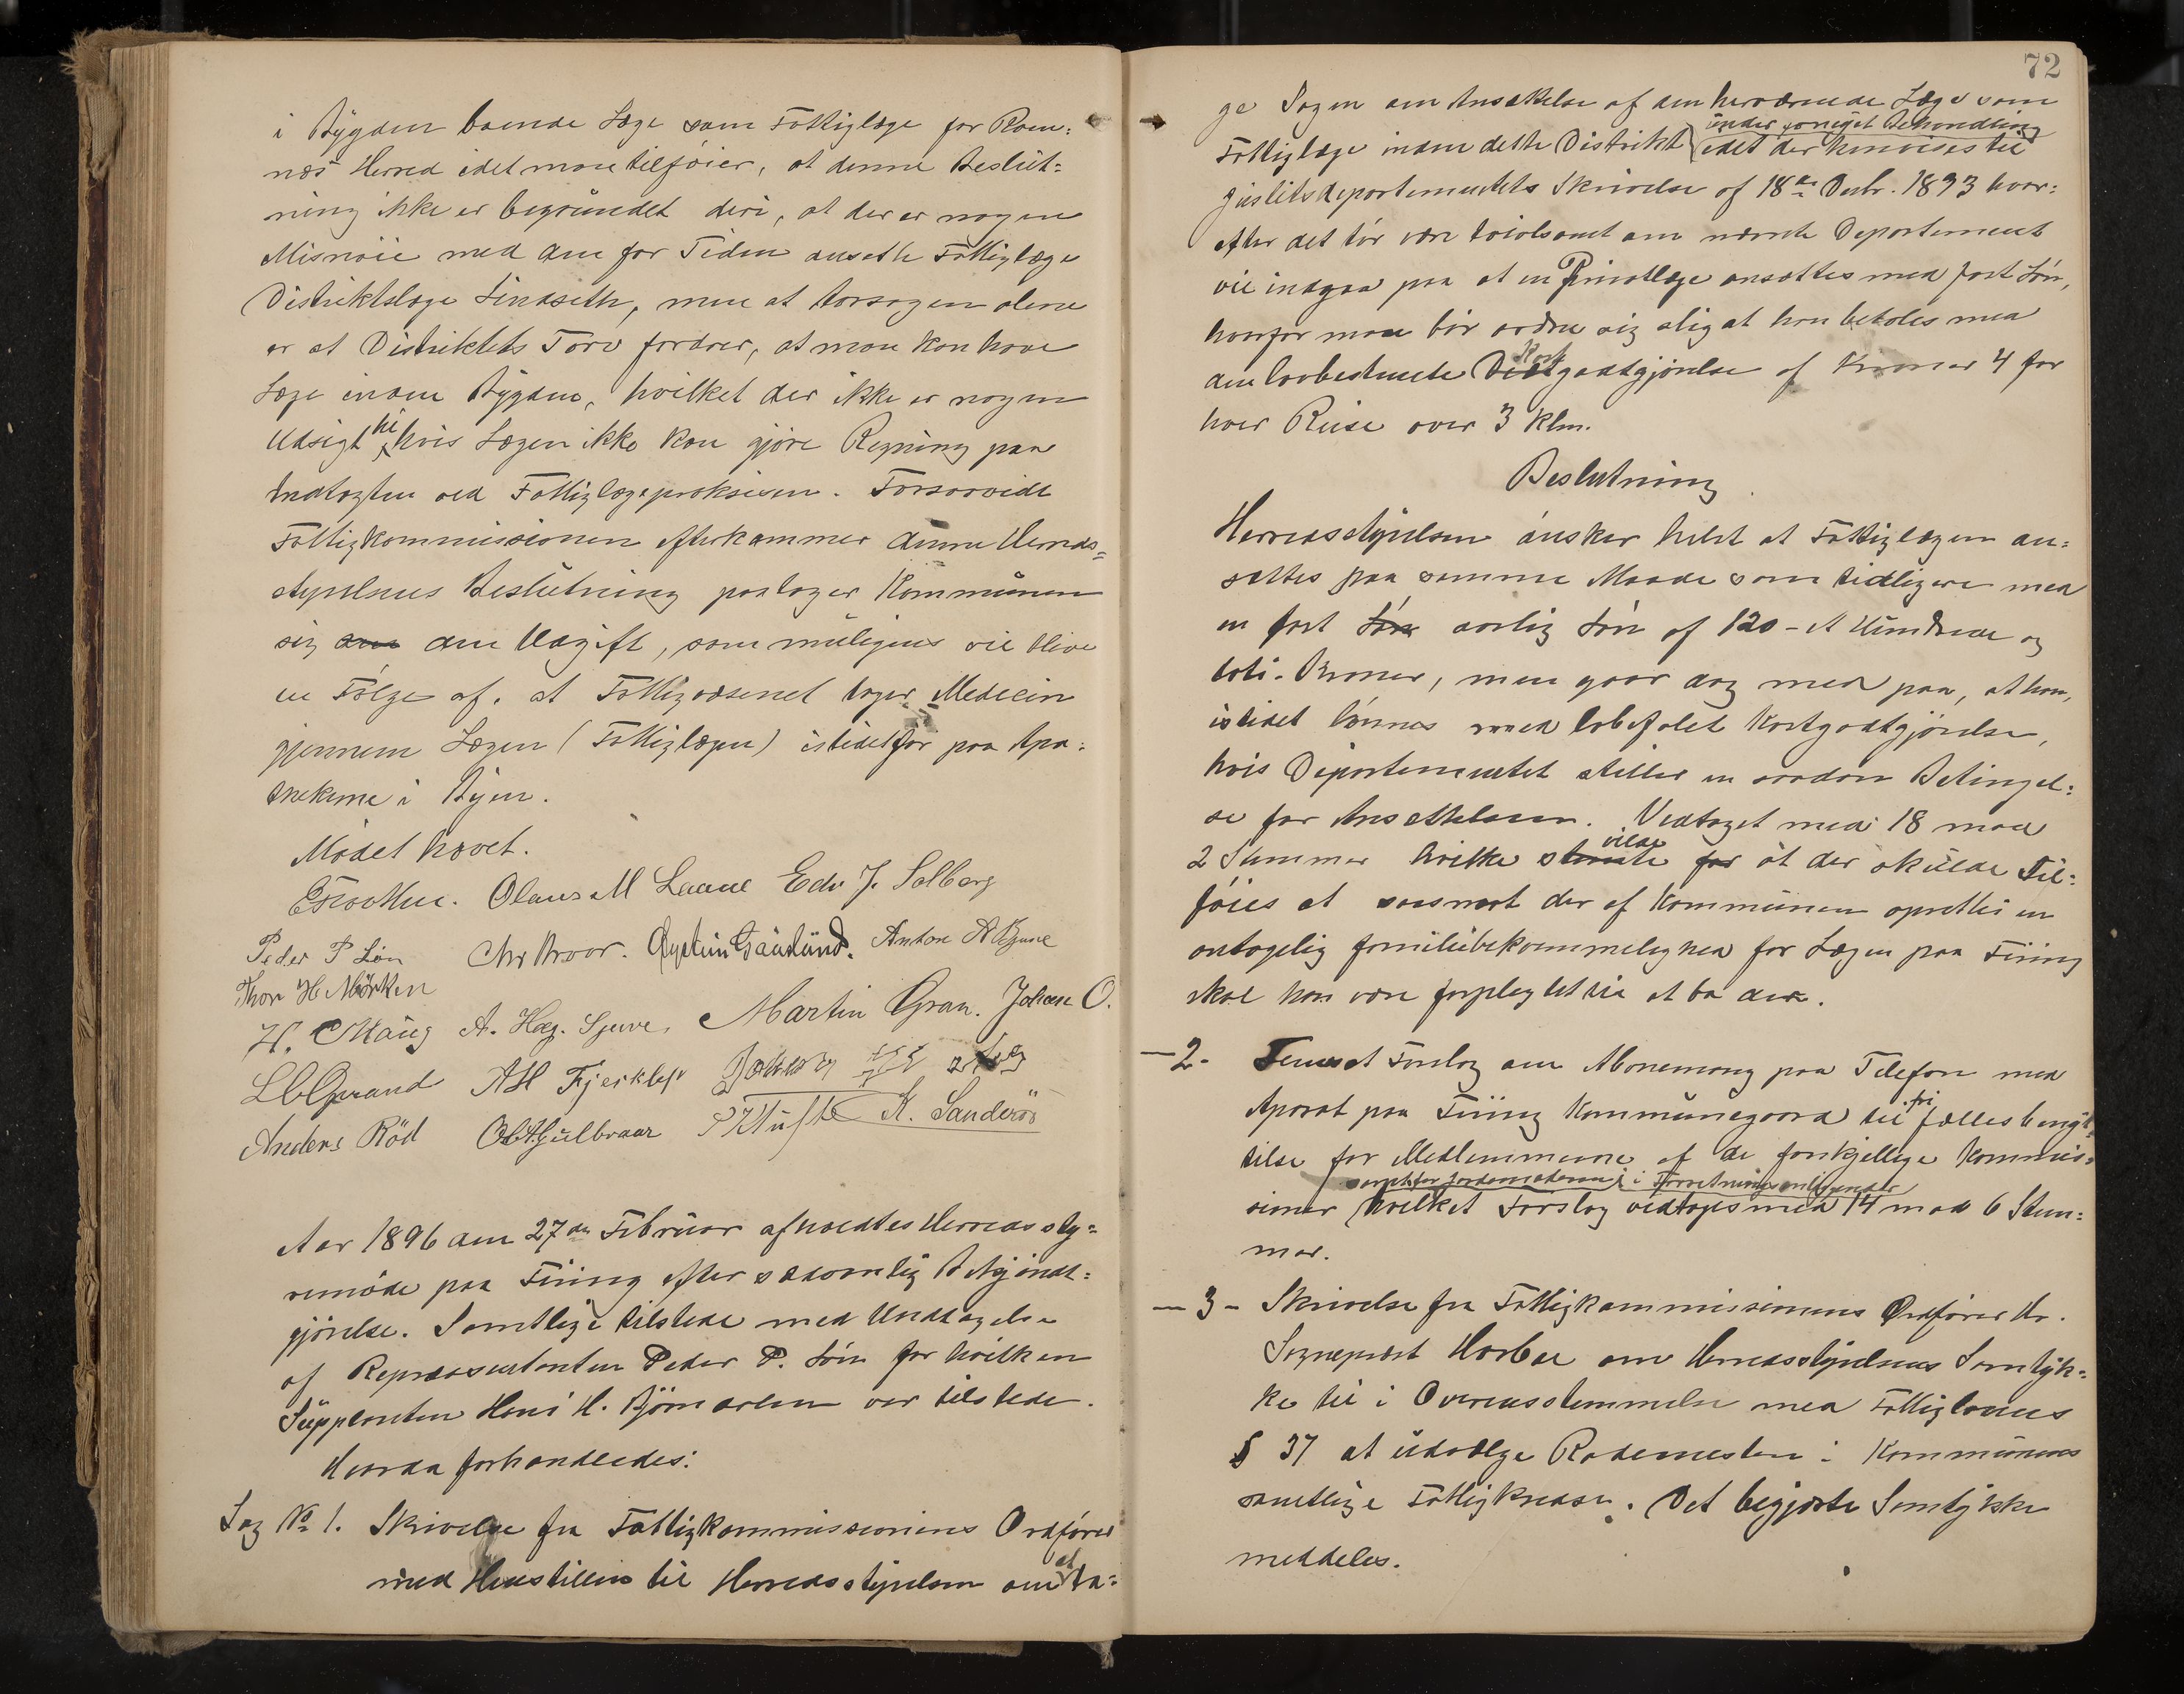 i Bygden boende Læge som Fattiglæge for Ram:
næs Herred idet man tilføier, at denne Beslut:
ning ikke er begrundet deri, at der er nogen
Misnøie med den for Tiden ansatte Fattiglæge
Distriktslæge Lindseth, men at Aarsagen alene
er at Distriktets Tarv fordrer, at man kan have
Læge inden Bygden, hvilket der ikke er nogen
Udsigt til, hvis Lægen ikke kan gjøre Regning paa
Indtægten ved Fattiglægepraksisen. Forsaavidt
Fattigkommissionen efterkommer denne Herreds=
styrelsens Beslutning paatager Kommunen
sig den Udgift, som muligens vil blive
en Følge af, at Fattigvæsenet tager Medicin
gjennem Lægen (Fattiglægen) istedetfor paa Apo:
thekerne i Byen.
Mødet hævet.
Olaus M Laane Edv J. Solberg
Peder P Løn Chr Kroer. Anton A Bjune
Thor H Mørken
H. Haug A. Hag. Sjuve, Martin Gran. Johan O.
AH Fjerklep
Anders Rød K. Sanderød
Aar 1896 den 27de Februar afholdtes Herredssty=
remøde paa Fiing efter sædvanlig Bekjendt:
gjørelse. Samtlige tilstede med Undtagelse
af Repræsentanten Peder P. Løn for hvilken
Supplanten Hans H. Bjørndalen var tilstede.
Hvorda forhandledes:
Sag No 1. Skrivelse fra Fattigkommissionens Ordfører
med Henstillen til Herredsstyrelsen om at ta:
72
ge Sagen om Ansættelse af den herværende Læge som
under fornyet Behandling
Fattiglæge inden dette Distrikt idet der henvises til
Justitsdepartementets Skrivelse af 18de Decbr. 1893 hvor:
efter det tør være tvivlsomt om nævnte Departement
vil indgaa paa at en Privatlæge ansættes med fast Løn,
hvorfor man bør ordne sig slig at han betales med
Kost
den lovbestemte Diætgodtgjørelse af Kroner 4 for
hver Reise over 3 Klm.
Beslutning
Herredsstyrelsen ønsker helst at Fattiglægen an:
sættes paa samme Maade som tidligere med
en fast Løn aarlig Løn af 120 - et Hundrede og
tyve Kroner, men gaar dog med paa, at han,
istedet lønnes med lovbefalet Kostgodtgjørelse,
hvis Departementet stiller en saadan Betingel:
se for Ansættelsen. Vedtaget med 18 mod
vilde
2 Stemmer hvilke stemte for at der skulde Til:
føies at saasnart der af Kommunen oprettes en
antagelig familiebekvemmelighed for Lægen paa Fiing
skal han være forpligtet til at bo der.
- 2 - Forslag om Abonemang paa Telefon med
Aparat paa Fiing Kommunegaard til fri fælles beny:
telse for Medlemmerne af de forskjellige Kommis=
samt for Jordemoderen i Forretningsanliggender
sioner hvilket Forslag vedtoges med 14 mod 6 Stem:
mer.
- 3 - Skrivelse fra Fattigkommissionens Ordfører Hr.
Sogneprest Horbye om Herredsstyrelsens Samtyk:
ke til i Overensstemmelse med Fattiglovens
§ 37 at udvælge Rodemestere i Kommunens
samtlige Fattigkredse. Det begjærte Samtykke
meddeles.